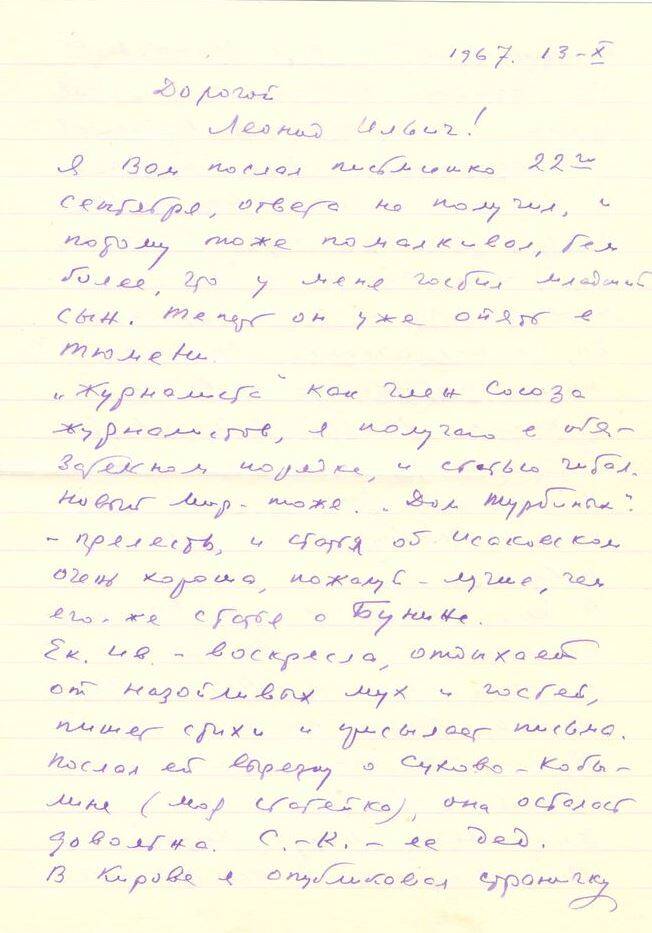 1967. 13-X
Дорогой
Леонид Ильич!
Я Вам послал письмишко 22го
сентября, ответа не получил, и
потому тоже помалкивал, тем
более, что у меня гостил младший
сын. Теперь он уже опять в
Тюмени.
„Журналиста" как член Союза
журналистов, я получаю в обя-
зательном порядке, и статью читал.
Новый мир - тоже. „Дом Турбиных"
- прелесть, и статья об Исаковском
очень хороша, пожалуй - лучше, чем
его-же статья о Бунине.
Ек. Ив. - воскресла, отдыхает
от назойливых мух и гостей,
пишет стихи и присылает письма.
Послал ей вырезку о Сухово-Кобы-
лине (моя статейка), она осталась
довольна. С.-К. - ее дед.
В Кирове я опубликовал страничку